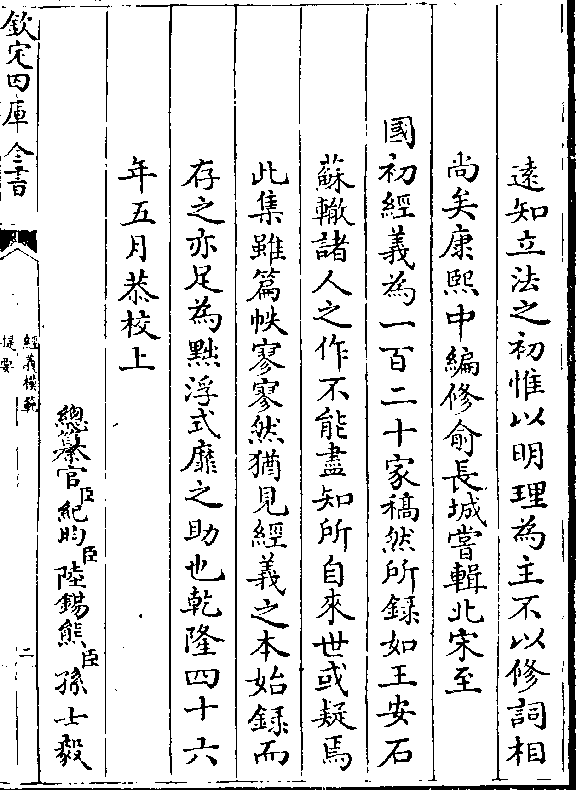 遠知立法之初惟以明理為主不以修詞相
尚矣康熙中編修俞長城嘗輯北宋至
國初經義為一百二十家稿然所録如王安石
蘇轍諸人之作不能盡知所自來世或疑焉
此集雖篇帙寥寥然猶見經義之本始録而
存之亦足為黜浮式靡之助也乾隆四十六
年五月恭校上
總纂官臣紀昀臣陸錫熊臣孫士毅
欽定四庫全書
經義模範
提要
二